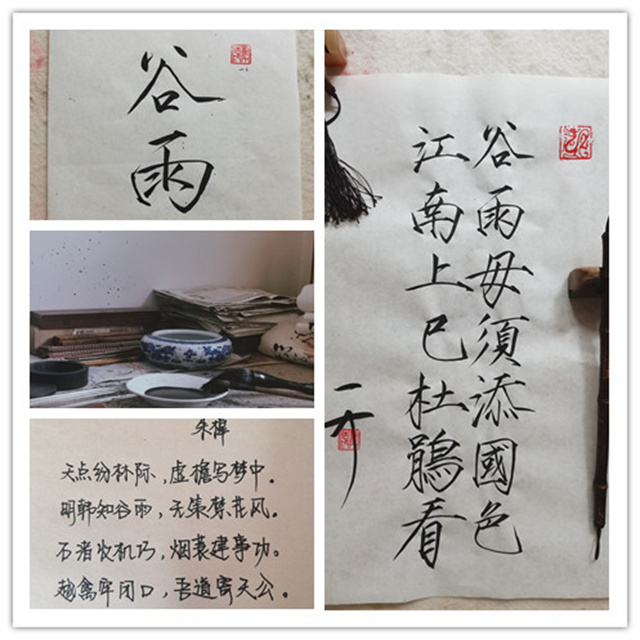 谷雨
朱槔
天点纷林际,虚檐写梦中。
明朝知谷雨,无策禁花风。
石渚收机巧,烟蓑建事功。
越禽牢闭口,吾道寄天公。
谷雨毋須添國色
江南上巳杜鵑看